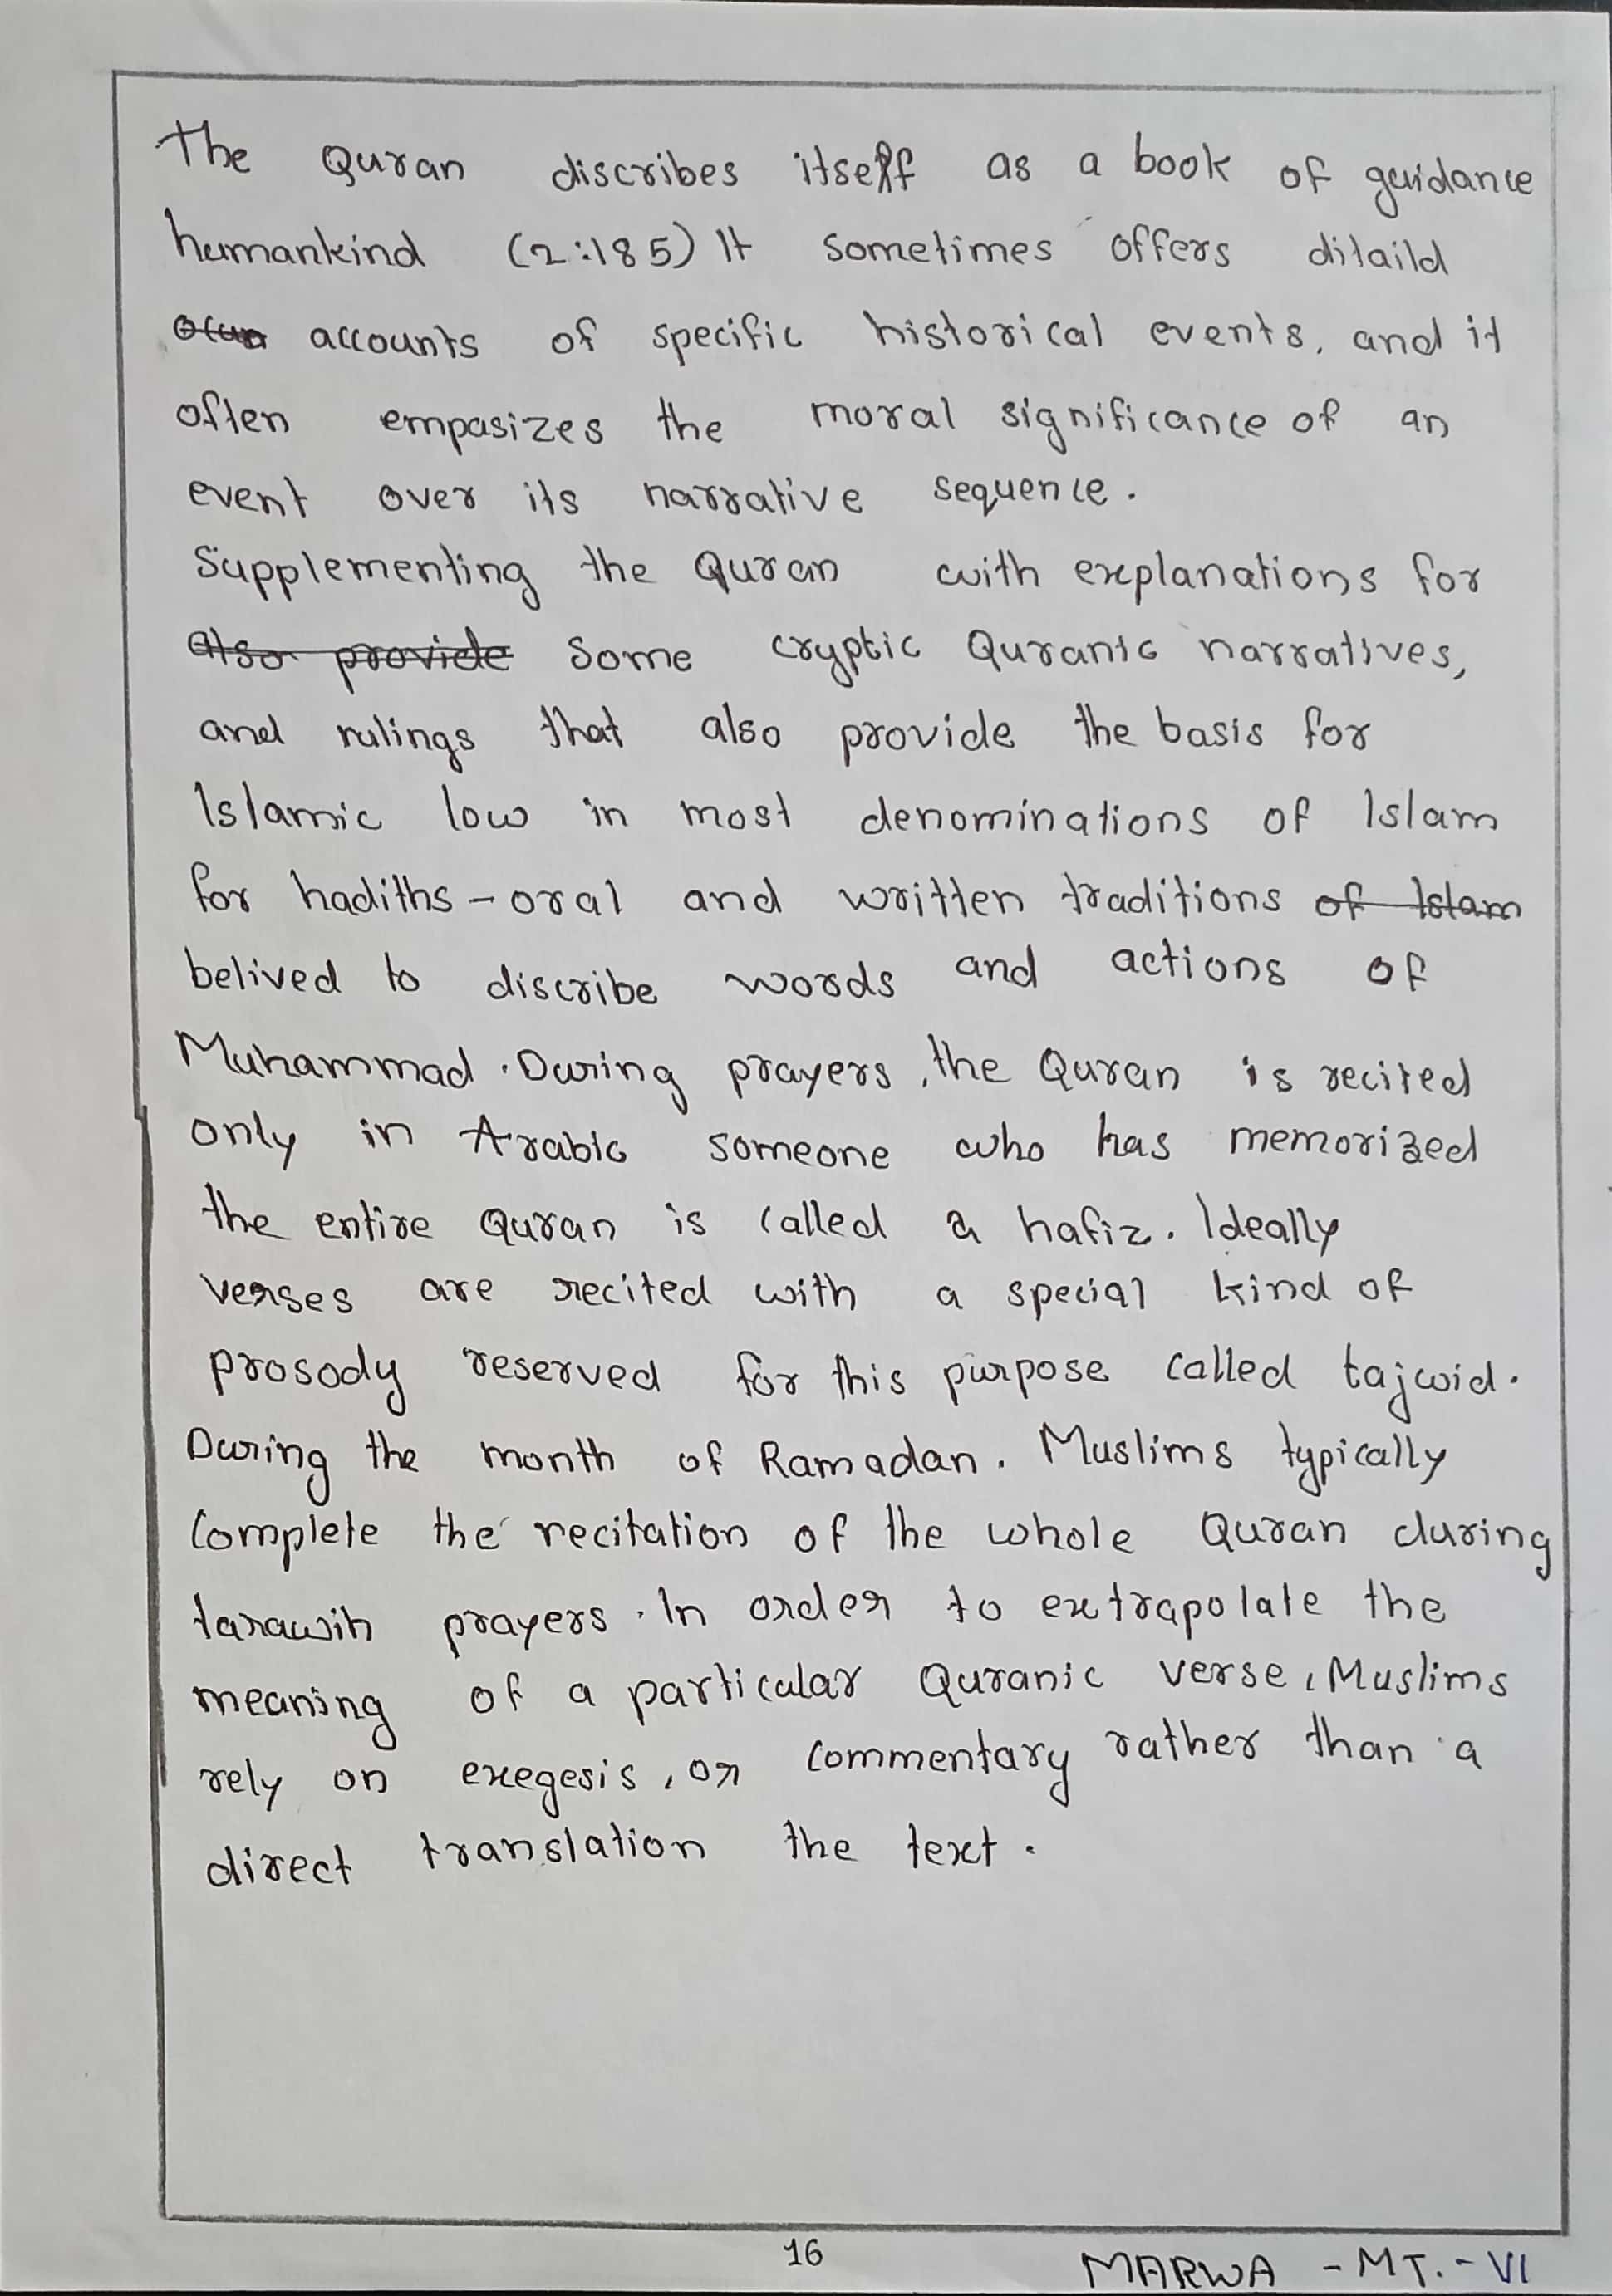 The Quran discribes itself as a book of guidance
humankind (2:185) It sometimes offers ditaild
accounts of specific historical events, and it
often empasizes the moral significance of an
event over its narrative sequence.
Supplementing the Quran with explanations for
also provide some cryptic Quranic narratives,
and rulings that also provide the basis for
Islamic low in most denominations of Islam
for hadiths - oral and written traditions of Islam
belived to discribe words and actions of
Muhammad. During prayers, the Quran is recited
only in Arabic someone who has memorized
the entire Quran is called a hafiz. Ideally
verses are recited with a special kind of
prosody reserved for this purpose called tajwid.
During the month of Ramadan. Muslims typically
complete the recitation of the whole Quran during
tarawih prayers. In order to extrapolate the
meaning of a particular Quranic verse, Muslims
rely on exegesis, or commentary rather than a
direct translation the text.
16
MARWA - MT. - VI